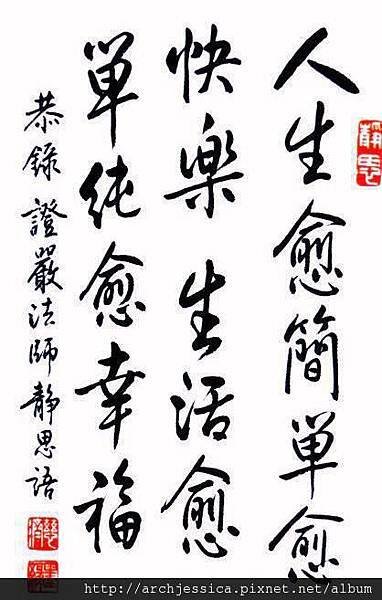 人生愈簡単愈
快樂生活愈
単純愈幸福
恭錄證嚴法師靜思語
靜思
http://archjessica.pixnet.net/album